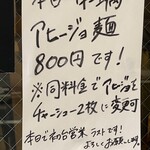 本日
アヒージョ麺
800円です!
※同料金でアヒージョを
チャーシュー2枚に変更可
本日で初台営業ラストです!
よろしくお願いします。